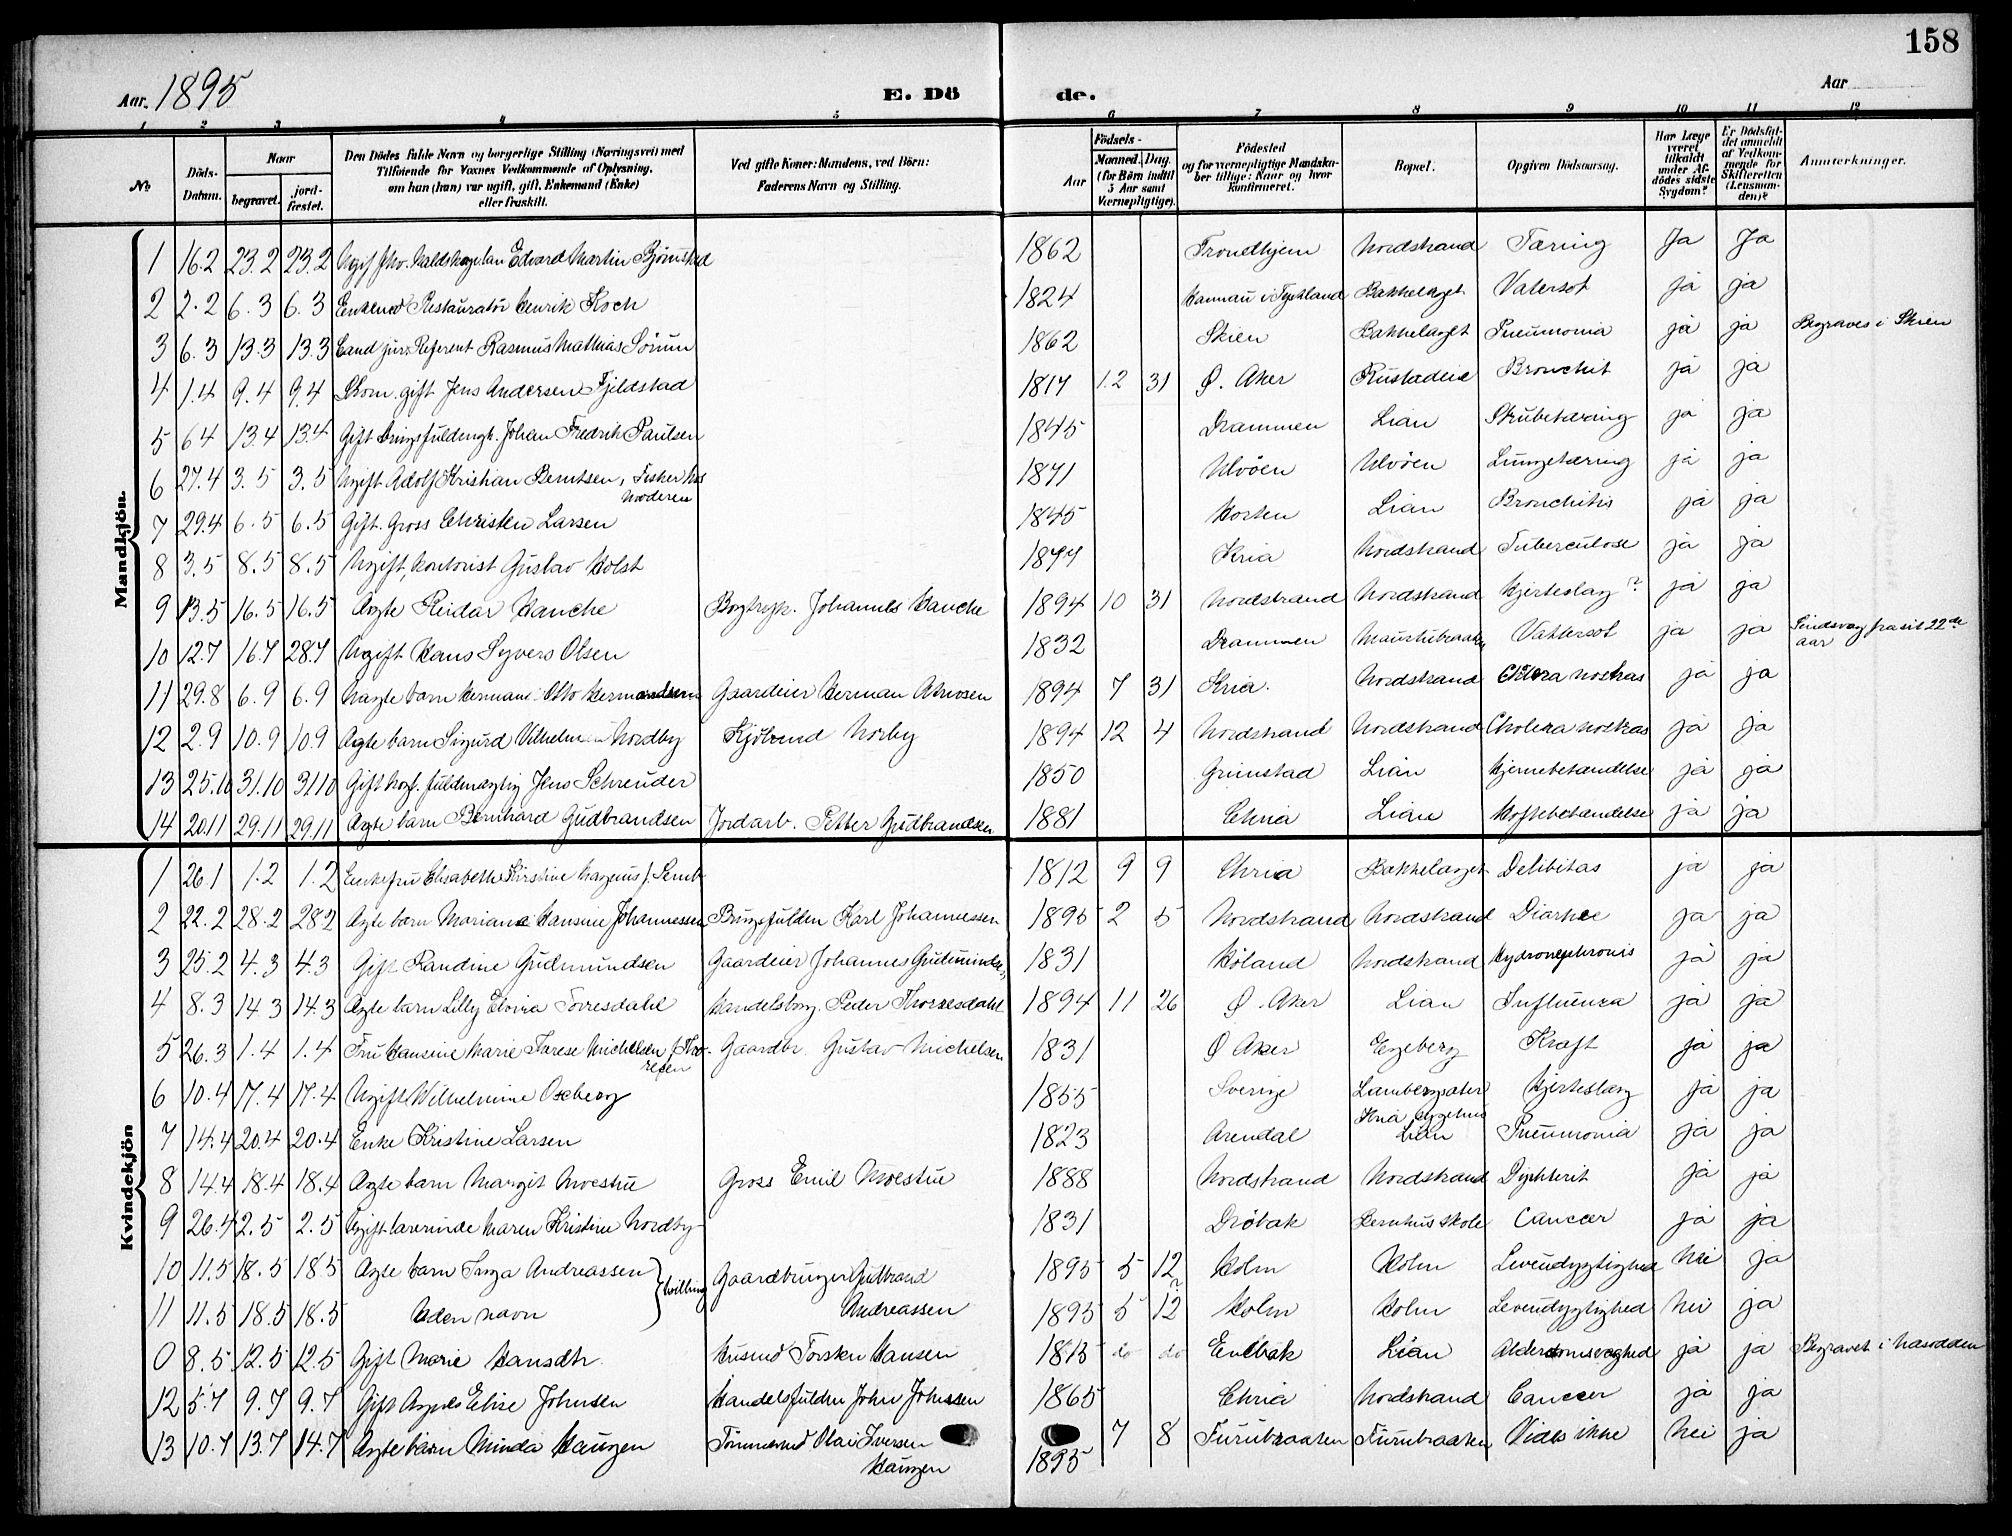 158
Aar. 1895 E. Dö de. Aar
1 2 3 4 5 6 7 8 9 10 11 12
No
Döds-Datum.
Naar
begravet.
jord-fæstet.
Den Dödes fulde Navn og borgerlige Stilling (Næringsvei) med
Tilföiende for Voxnes Vedkommende af Oplysning,
om han (hun) var ugift, gift, Enkemand (Enke)
eller fraskilt.
Ved gifte Koner: Mandens, ved Börn:
Faderens Navn og Stilling.
Födsels-
Aar
Maaned. Dag.
(for Börn indtil
5 Aar samt
Værnepligtige).
Födested
og for værnepligtige Mandska-
ber tillige: Naar og hvor
konfirmeret.
Bopæl.
Opgiven Dödsaarsag.
Har Læge
været
tilkaldt
under Af-
dödes sidste
Sygdom?
Er Dödsfal-
det anmeldt
af Vedkom-
mende for
Skifteretten
(Lensman-
den)?
Anmerkninger.
Mandkjön.
1 16.2 23.2 23.2 Edvard Martin Björnstad 1862 Trondhjem Nordstrand Tæring Ja Ja
2 2.2 6.3 6.3 Enkemd Restauratör Henrik Koch 1824 Hannau i Tyskland Bækkelaget Vatersot ja ja
3 6.3 13.3 13.3 Cand jur. Referent Rasmus Mathias Sörum 1862 Skien Bækkelaget Pneumonia ja ja Begraves i Skien
4 1.4 9.4 9.4 Skom. gift Jens Andersen Fjeldstad 1817 12 31 Ø. Aker Rustadeie Bronchit ja ja
5 6.4 13.4 13.4 Gift Johan Fredrik Paulsen 1845 Drammen Lian Strubetæring ja ja
6 27.4 3.5 3.5 Ugift Adolf Kristian Berntsen, Fisker hos
Moderen 1871 Ulvöen Ulvöen Lungetæring ja ja
7 29.4 6.5 6.5 Gift. Gross Christen Larsen 1845 Horten Lian Bronchitis ja ja
8 3.5 8.5 8.5 Ugift, Kontorist Gustav Holst 1877 Kria Nordstrand Tuberculose ja ja
9 13.5 16.5 16.5 Ægte Reidar Hanche Bogtryk. Johannes Hanche 1894 10 31 Nordstrand Nordstrand Hjerteslag? ja ja
10 12.7 16.7 28.7 Ugift Hans Syvers Olsen 1832 Drammen Vattersot ja ja Sindsvag fra sit 22de
aar
11 29.8 6.9 6.9 Uægte barn Hermann Otto Hermandsen Gaardeier Herman 1894 7 31 Kria. Nordstrand Cholera nostras ja ja
12 2.9 10.9 10.9 Ægte barn Sigurd Vilhelm Nordby Norby 1894 12 4 Nordstrand Nordstrand Cholera nostras ja ja
13 25.10 31.10 31.10 Gift fuldmægtig Jens Schreuder 1850 Grimstad Lian Hjernebetændelse ja ja
14 20.11 29.11 29.11 Ægte barn Bernhard Gudbrandsen Jordarb. Petter Gudbrandsen 1881 Chria Lian Hoftebetændelse ja ja
Kvindekjön
1 26.1 1.2 1.2 Enkefru Elisabeth Kirstine Magnus f. 1812 9 9 Chria Bækkelaget Delibitas ja ja
2 22.2 28.2 28.2 Ægte barn Mariane Hansine Johannessen Karl Johannessen 1895 2 5 Nordstrand Nordstrand Diarhee ja ja
3 25.2 4.3 4.3 Gift Randine Gudmundsen Gaardeier Johannes 1831 Höland Nordstrand Hydronephronis ja ja
4 8.3 14.3 14.3 Ægte barn Lilly Elvira Torresdahl Handelsborg. Peder Thorresdahl 1894 11 26 Ø. Aker Lian Influenza ja ja
5 26.3 1.4 1.4 Fru Hansine Marie Terese Michelsen f. Gaardbr. Gustav Michelsen 1831 Ø Aker Egeberg Kræft ja ja
6 10.4 17.4 17.4 Ugift Wilhelmine Oseberg 1855 Sverige Lambergsæter Hjerteslag ja ja
7 14.4 20.4 20.4 Enke Kristine Larsen 1823 Arendal Kria Sygehus
Lian Pneumonia ja ja
8 14.4 18.4 18.4 Ægte barn Margit Moestue Gross Emil Moestue 1888 Nordstrand Nordstrand Dyphterit ja ja
9 26.4 2.5 2.5 Ugift lærerinde Maren Kristine Nordby 1831 Dröbak skole Cancer ja ja
10 11.5 18.5 18.5 Ægte barn Inga Andreassen tvilling Gaardbruger Gulbrand 1895 5 12 Holm Holm Levendygtighed Nei ja
11 11.5 18.5 18.5 Uden navn Andreassen 1895 5 12 Holm Holm Levendygtighed Nei ja
0 8.5 12.5 12.5 Gift Marie Hansdtr. Husmd Torsten Hansen 1813 do do Enebak Lian Alderdomsvaghed ja ja Begravet i Næsodden
12 5.7 9.7 9.7 Gift Agnes Elise Johnsen Handelsfuldm John Johnsen 1865 Chria Nordstrand Cancer ja ja
13 10.7 13.7 14.7 Ægte barn Minda Haugen Tömmermd Olai Iversen
Haugen 1895 7 8 Furubraaten Furubraaten Vides ikke Nei ja